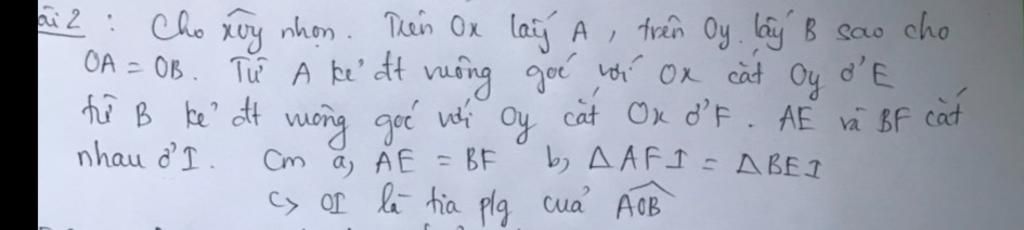 ài 2 : Cho xOy nhọn. Trên Ox lấy A, trên Oy lấy B sao cho
OA = OB. Từ A kẻ đt vuông góc với Ox cắt Oy ở E
từ B kẻ đt vuông góc với Oy cắt Ox ở F. AE và BF cắt
nhau ở I. Cm a, AE = BF b, △AFI = △BEI
c> OI là tia p/g của AOB